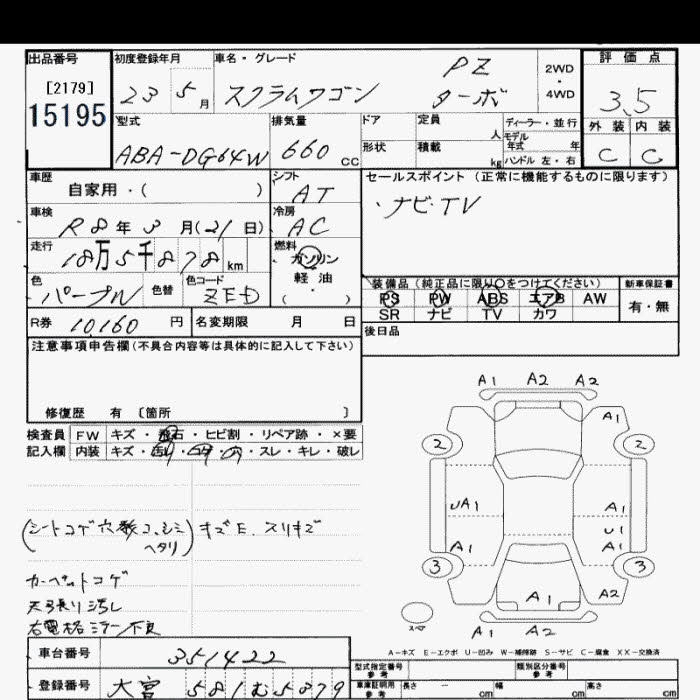 出品番号 初度登録年月 車名・グレード 評価点
[2179] 23 5月 スクラムワゴン PZ ターボ 2WD・4WD 3.5
15195 型式 排気量 ドア 定員 人 ディーラー・並行 外装 内装
ABA-DG64W 660cc 形状 積載 kg モデル年式 年 ハンドル 左・右 C C
車歴 シフト セールスポイント (正常に機能するものに限ります)
自家用・( ) AT ・ナビ・TV
車検 冷房
R8年3月(21日) AC
走行 燃料
18万5千878km ガソリン
軽油
色 色替 色コード ( ・ ) 装備品 (純正品に限り○をつけてください) 新車保証書
パープル ZED PS PW ABS エアB AW 有・無
SR ナビ TV カワ
R券 10,160円 名変期限 月 日 後日品
注意事項申告欄(不具合内容等は具体的に記入して下さい)
修復歴 有 〔箇所 〕
検査員 FW キズ・飛石・ヒビ割・リペア跡・×要
記入欄 内装 キズ・ ・スレ・キレ・破レ
(シートコゲ穴数コ、シミ ヘタリ) キズE.スリキズ
カーペットコゲ
天張り汚レ
右電格ミラー不良
A1 A2 A2
A1
2 2
UA1 A1
U1
A1 A1
3 3
A1 A2
スペア A1 A2
A-キズ E-エクボ U-凹み W-補修跡 S-サビ C-腐食 XX-交換済
車台番号 351422 型式指定番号 参考 類別区分番号 参考
登録番号 大宮 581む5879 車庫証明用 参考 長さ cm 幅 cm 高さ cm